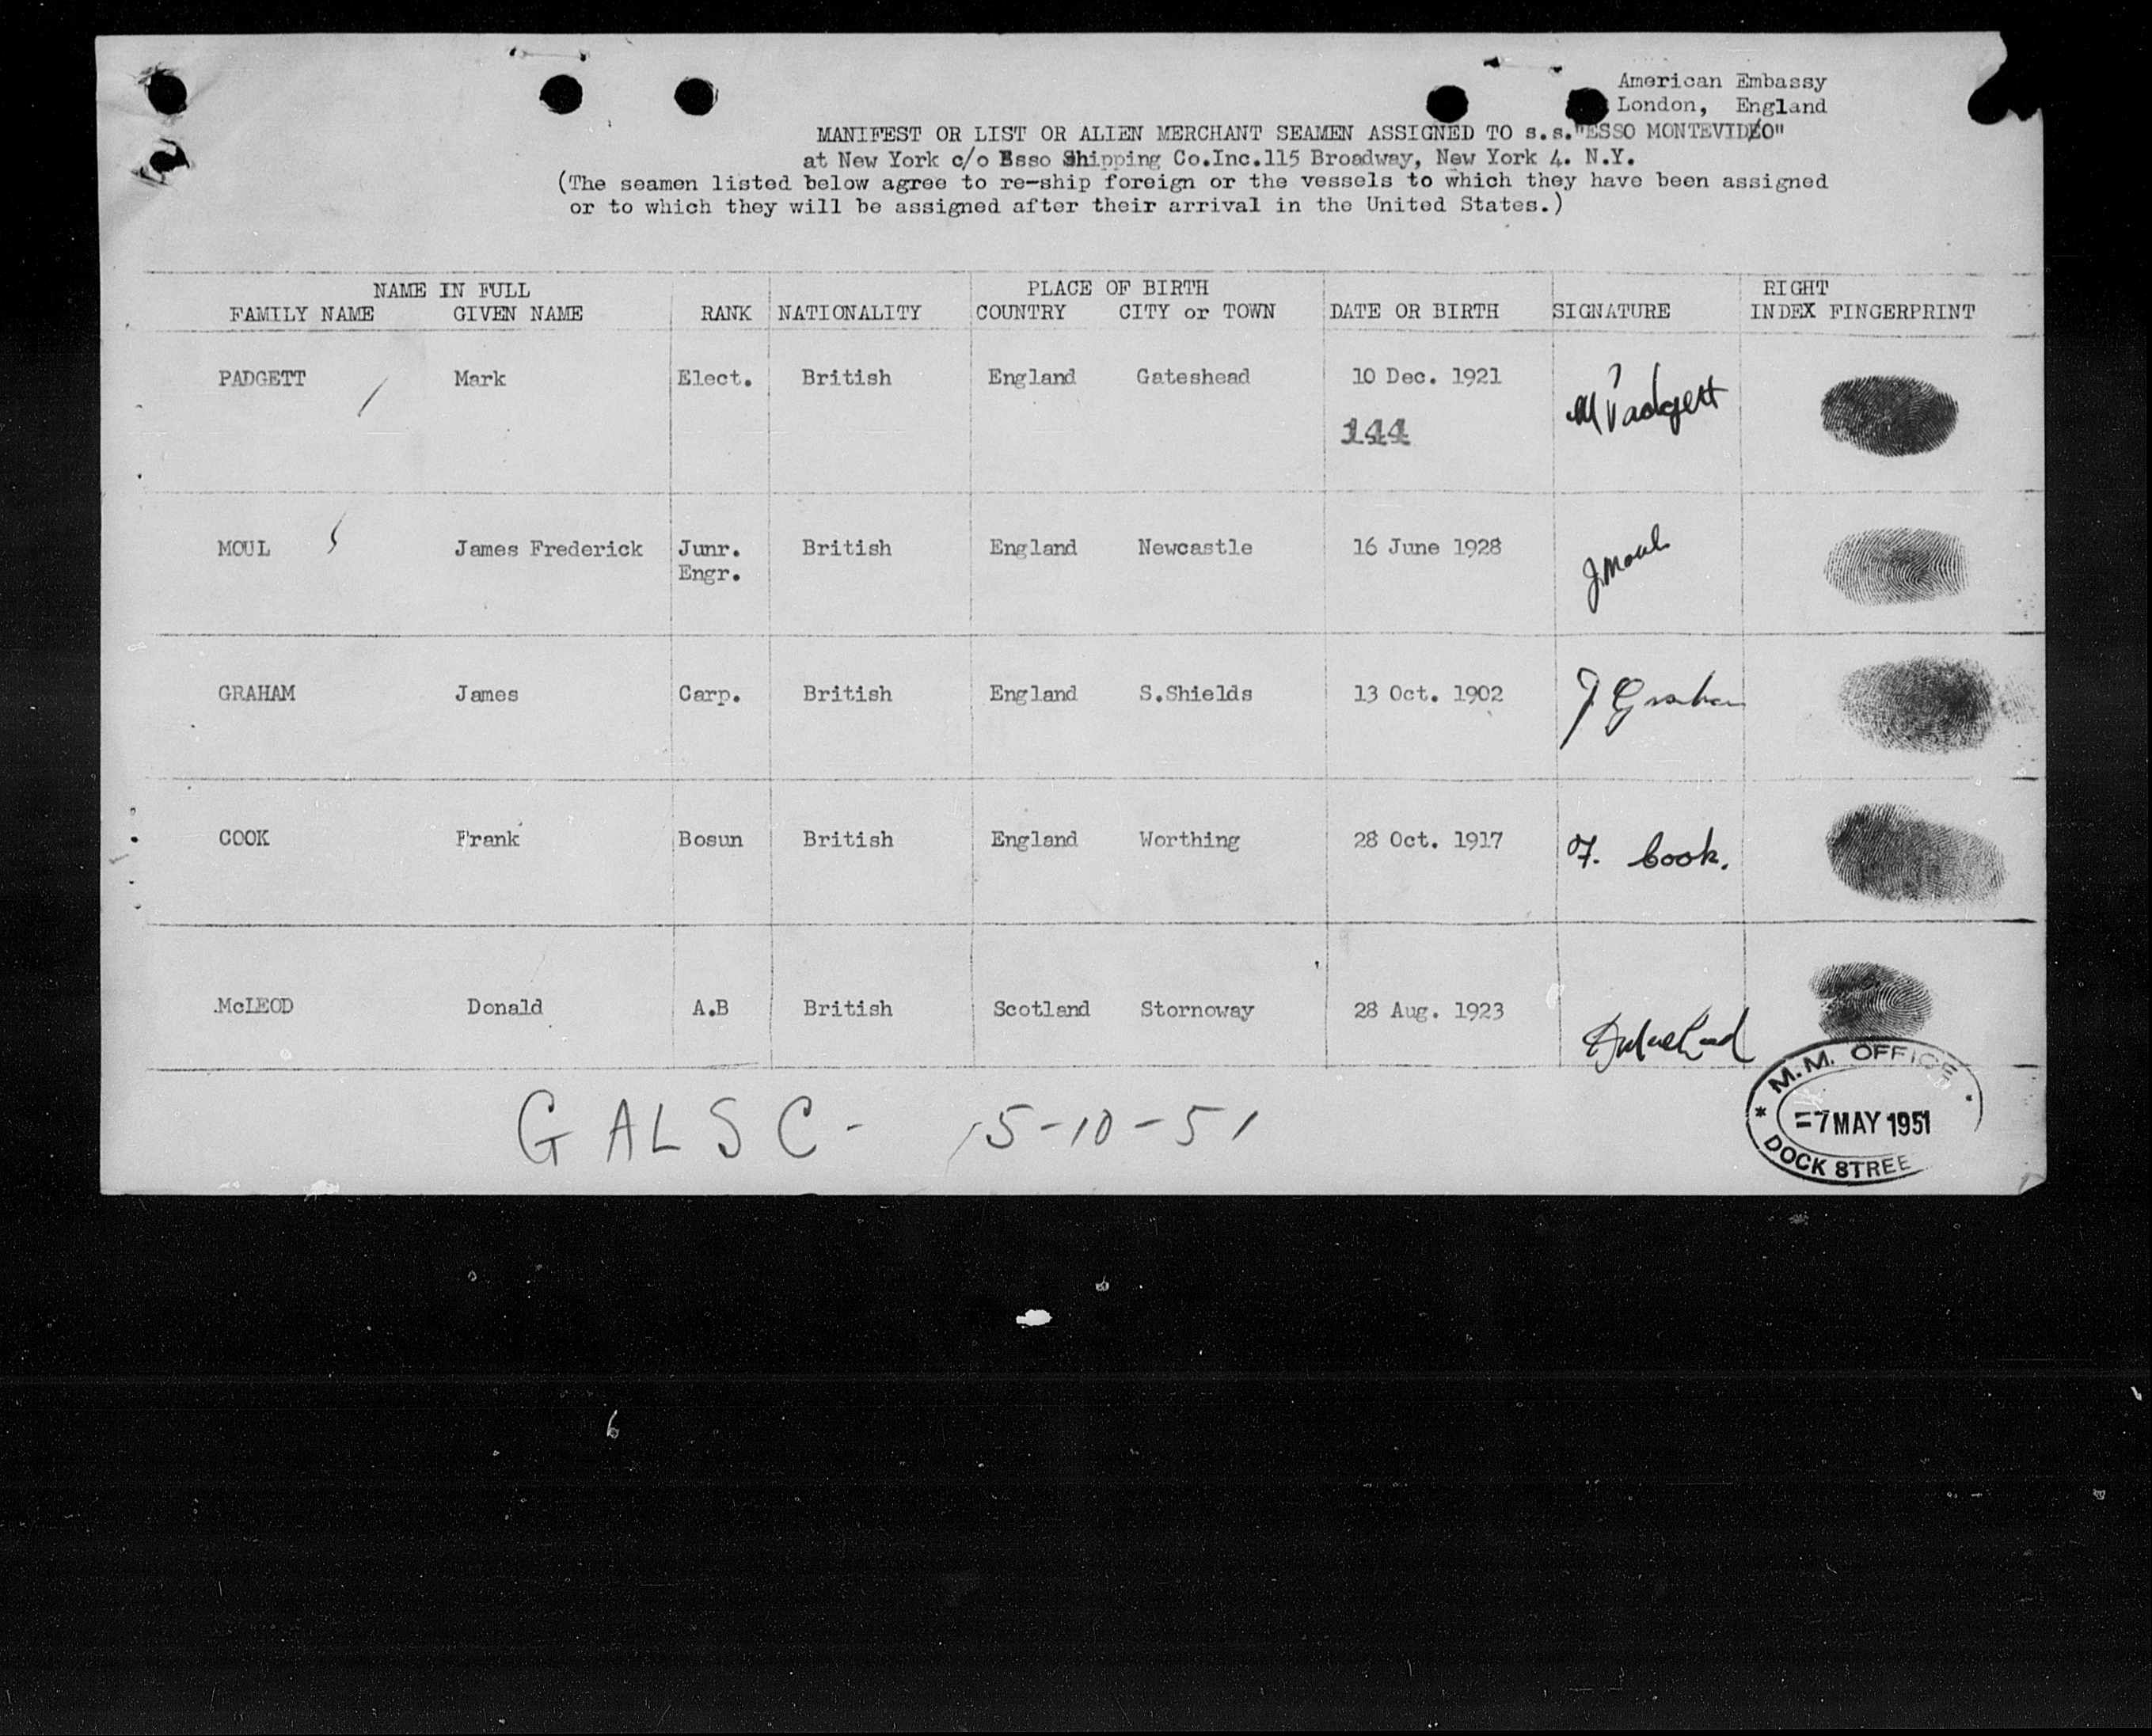 American Embassy
London, England
MANIFEST OR LIST OR ALIEN MERCHANT SEAMEN ASSIGNED TO s.s."ESSO MONTEVIDEO"
at New York c/o Esso Shipping Co.Inc.115 Broadway, New York 4. N.Y.
(The seamen listed below agree to re-ship foreign or the vessels to which they have been assigned
or to which they will be assigned after their arrival in the United States.)
NAME IN FULL PLACE OF BIRTH RIGHT
FAMILY NAME GIVEN NAME RANK NATIONALITY COUNTRY CITY or TOWN DATE OR BIRTH SIGNATURE INDEX FINGERPRINT
PADGETT Mark Elect. British England Gateshead 10 Dec. 1921 M Padgett
144
MOUL James Frederick Junr. British England Newcastle 16 June 1928 J Moul
Engr.
GRAHAM James Carp. British England S.Shields 13 Oct. 1902 J Graham
COOK Frank Bosun British England Worthing 28 Oct. 1917 F. Cook.
McLEOD Donald A.B British Scotland Stornoway 28 Aug. 1923
M.M. OFFICE
7 MAY 1951
DOCK STREE
GALSC- 5-10-51